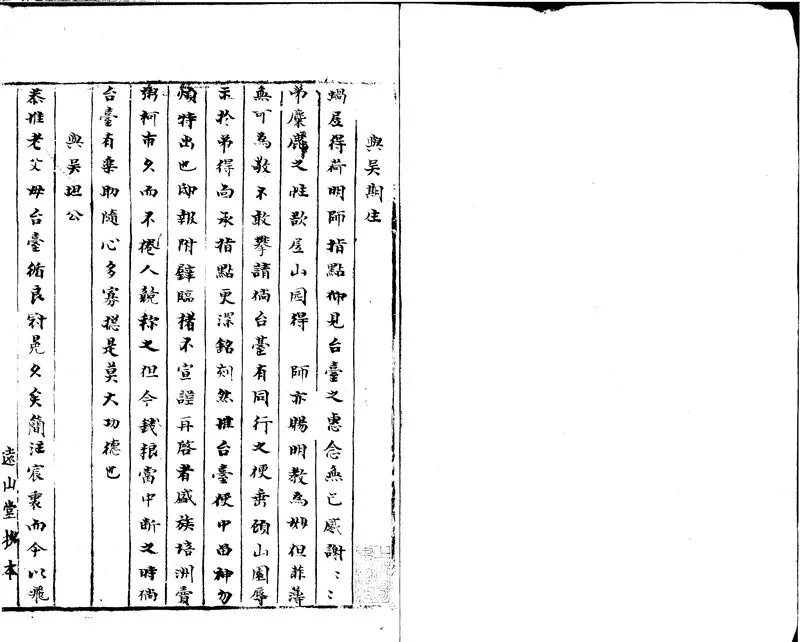 與吴期生
蝸居得荷明師指點仰見台臺之惠念無已感謝〻〻
弟麋鹿之性欲居山園得 師亦賜明教為妙但菲薄
無可為敬不敢攀請倘台臺有同行之便垂顧山園辱
示於弟得向承指點更深銘刻然惟台臺便中留神勿
煩特出也邸報附璧臨楮不宣謹再啓者盛族培洲賣
粥柯市久而不捲人競稱之但今錢粮當中斷之時倘
台臺有樂助隨心多寡總是莫大功德也
與吴坦公
恭惟老父母台臺循良冠冕久矣簡注宸衷而今以飛
遠山堂抄本